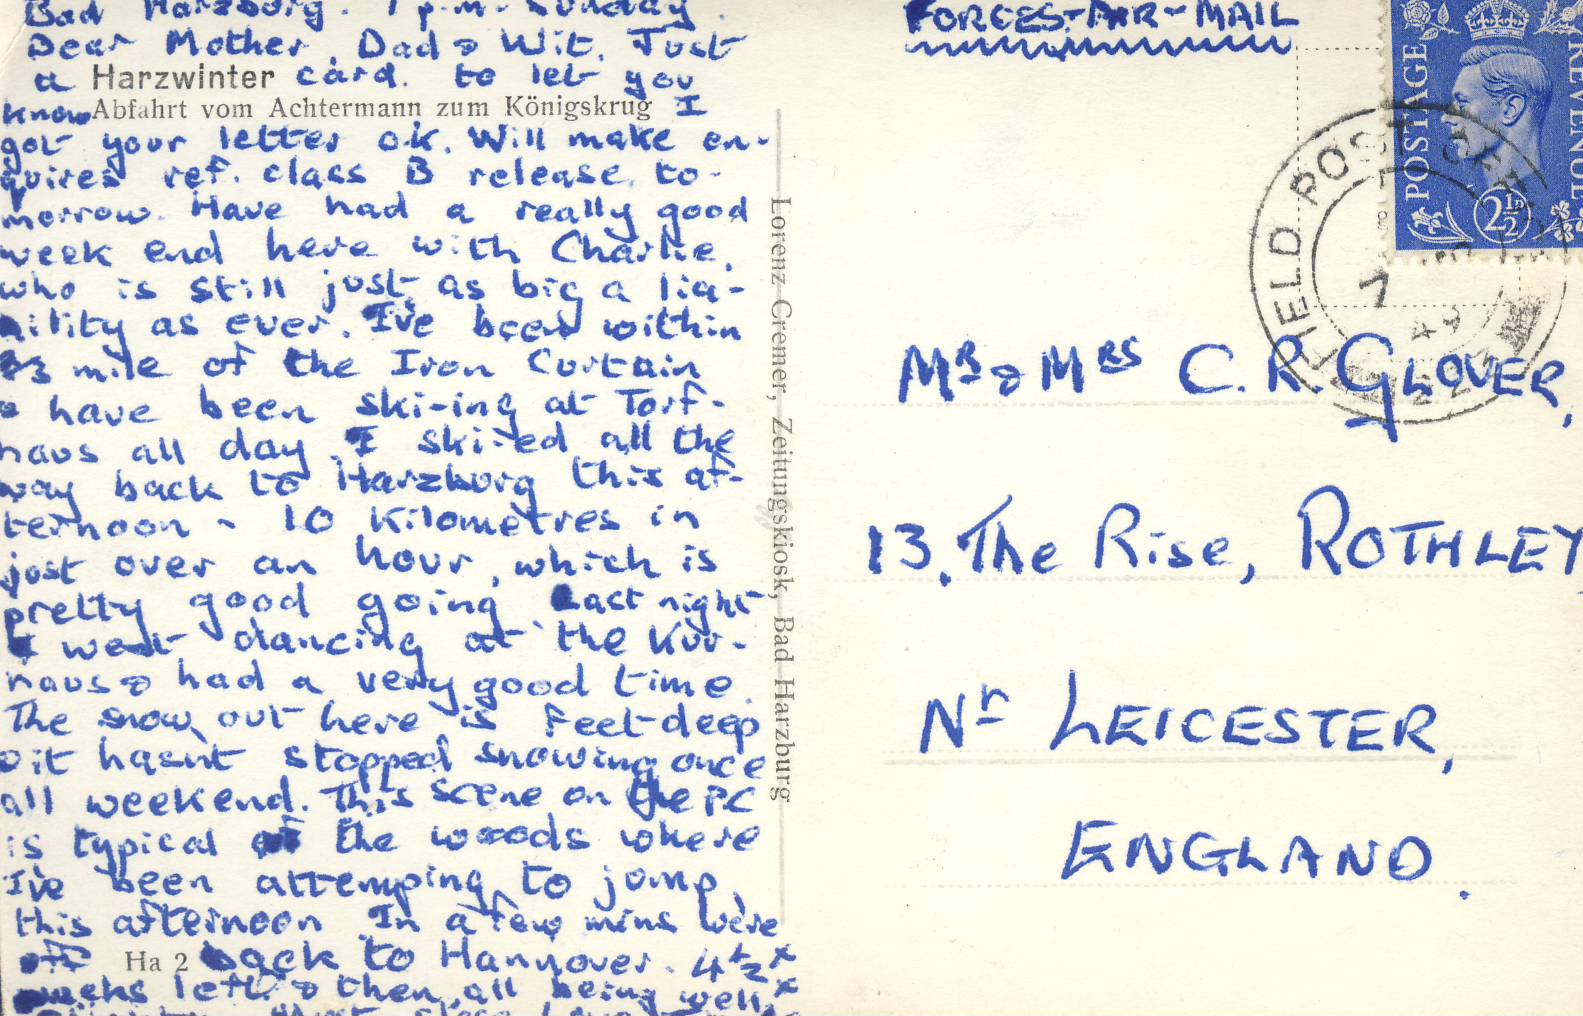 Bad Harzburg. 7 p.m. Sunday.
Dear Mother, Dad & Wit. Just
a Harzwinter card. to let you
know Abfahrt vom Achtermann zum Königskrug I
got your letter o.k. Will make en-
quires ref. class B release to-
morrow. Have had a really good
week end here with Charlie,
who is still just as big a lia-
bility as ever. I've been within
mile of the Iron Curtain
& have been ski-ing at Torf-
haus all day. I ski-ed all the
way back to Harzburg this af-
ternoon - 10 kilometres in
just over an hour, which is
pretty good going. Last night
I went dancing at the Kur-
haus & had a very good time.
The snow out here is feet-deep
& it hasnt stopped snowing once
all weekend. This scene on the PC
is typical of the woods where
I've been attemping to jump,
this afternoon. In a few mins we're
off Ha 2 back to Hannover. 4½ x
weeks left & then, all being well, x
FORCES-AIR-MAIL
POSTAGE
REVENUE
2½D
FIELD POST OFFICE
7
49
Mr & Mrs C. R. GLOVER,
13, The Rise, ROTHLEY
Nr LEICESTER,
ENGLAND.
Lorenz Cremer, Zeitungskiosk, Bad Harzburg